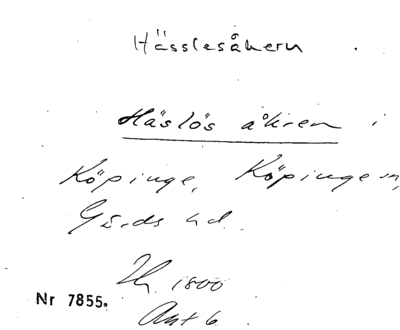 Hässlesåkern
Häslös åkren i
Köpinge, Köpinge sn,
Gärds hd.
1800
Nr 7855.
Akt 6